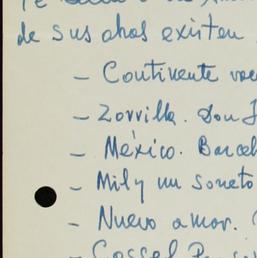 de sus obras existen
- Continente
- Zorrilla. Don J
- México. Barcel
- Mil y un soneto
- Nuevo amor. (